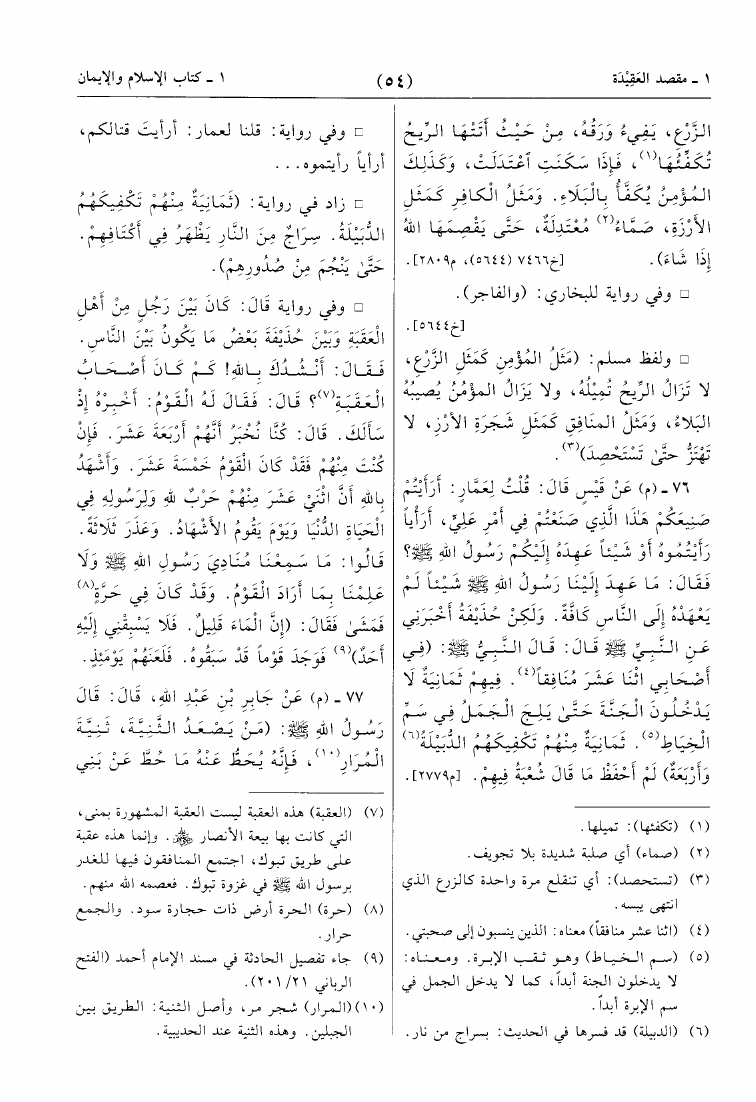 ١ - مقصد العَقِيْدَة
(٥٤)
١ - كتاب الإسلام والإيمان
الزَّرْعِ، يَفِيءُ وَرَقُهُ، مِنْ حَيْثُ أَتَتْهَا الرِّيحُ
تُكَفِّئُهَا(١)، فَإِذَا سَكَنَتِ اعْتَدَلَتْ، وَكَذٰلِكَ
المُؤْمِنُ يُكَفَّأُ بِالْبَلَاءِ. وَمَثَلُ الْكافِرِ كَمَثَلِ
الأَرْزَةِ، صَمَّاءُ(٢) مُعْتَدِلَةٌ، حَتَّى يَقْصِمَهَا اللهُ
إِذَا شَاءَ). [خ٧٤٦٦ (٥٦٤٤)، م٢٨٠٩].
□ وفي رواية للبخاري: (والفاجر).
[خ٥٦٤٤].
□ ولفظ مسلم: (مَثَلُ المُؤْمِنِ كَمَثَلِ الزَّرْعِ،
لا تَزَالُ الرِّيحُ تُمِيلُهُ، ولا يَزَالُ المؤْمنُ يُصِيبُهُ
البَلاءُ، وَمَثَلُ المنَافِقِ كَمَثَلِ شَجَرَةِ الأَرْزِ، لا
تَهْتَزُّ حتَّىٰ تَسْتَحْصِدَ)(٣).
٧٦ - (م) عَنْ قَيْسٍ قَالَ: قُلْتُ لِعَمَّارٍ: أَرَأَيْتُمْ
صَنِيعَكُمْ هَذَا الَّذِي صَنَعْتُمْ فِي أَمْرِ عَلِيٍّ، أَرَأْياً
رَأَيْتُمُوهُ أَوْ شَيْئاً عَهِدَهُ إِلَيْكُمْ رَسُولُ اللهِ ﷺ؟
فَقَالَ: مَا عَهِدَ إِلَيْنَا رَسُولُ اللهِ ﷺ شَيْئاً لَمْ
يَعْهَدْهُ إِلَى النَّاسِ كَافَّةً. وَلَكِنْ حُذَيْفَةُ أَخْبَرَنِي
عَنِ النَّبِيِّ ﷺ قَالَ: قَالَ النَّبِيُّ ﷺ: (فِي
أَصْحَابِي اثْنَا عَشَرَ مُنَافِقاً(٤). فِيهِمْ ثَمَانِيَةٌ لَا
يَدْخُلُونَ الْجَنَّةَ حَتَّىٰ يَلِجَ الْجَمَلُ فِي سَمِّ
الْخِيَاطِ(٥). ثَمَانِيَةٌ مِنْهُمْ تَكْفِيكَهُمُ الدُّبَيْلَةُ(٦)
وَأَرْبَعَةٌ) لَمْ أَحْفَظْ مَا قَالَ شُعْبَةُ فِيهِمْ. [م٢٧٧٩].
(١) (تكفئها): تميلها.
(٢) (صماء) أي صلبة شديدة بلا تجويف.
(٣) (تستحصد): أي تنقلع مرة واحدة كالزرع الذي
انتهى يبسه.
(٤) (اثنا عشر منافقاً) معناه: الذين ينسبون إلى صحبتي.
(٥) (سم الخياط) وهو ثقب الإبرة. ومعناه:
لا يدخلون الجنة أبداً، كما لا يدخل الجمل في
سم الإبرة أبداً.
(٦) (الدبيلة) قد فسرها في الحديث: بسراج من نار.
□ وفي رواية: قلنا لعمار: أرأيتَ قتالكم،
أرأياً رأيتموه...
□ زاد في رواية: (ثَمَانِيَةٌ مِنْهُمْ تَكْفِيكَهُمُ
الدُّبَيْلَةُ. سِرَاجٌ مِنَ النَّارِ يَظْهَرُ فِي أَكْتَافِهِمْ.
حَتَّىٰ يَنْجُمَ مِنْ صُدُورِهِمْ).
□ وفي رواية قَالَ: كَانَ بَيْنَ رَجُلٍ مِنْ أَهْلِ
الْعَقَبَةِ وَبَيْنَ حُذَيْفَةَ بَعْضُ مَا يَكُونُ بَيْنَ النَّاسِ.
فَقَالَ: أَنْشُدُكَ بِاللهِ! كَمْ كَانَ أَصْحَابُ
الْعَقَبَةِ(٧)؟ قَالَ: فَقَالَ لَهُ الْقَوْمُ: أَخْبِرْهُ إِذْ
سَأَلَكَ. قَالَ: كُنَّا نُخْبَرُ أَنَّهُمْ أَرْبَعَةَ عَشَرَ. فَإِنْ
كُنْتَ مِنْهُمْ فَقَدْ كَانَ الْقَوْمُ خَمْسَةَ عَشَرَ. وَأَشْهَدُ
بِاللهِ أَنَّ اثْنَيْ عَشَرَ مِنْهُمْ حَرْبٌ للهِ وَلِرَسُولِهِ فِي
الْحَيَاةِ الدُّنْيَا وَيَوْمَ يَقُومُ الأَشْهَادُ. وَعَذَرَ ثَلَاثَةً.
قَالُوا: مَا سَمِعْنَا مُنَادِيَ رَسُولِ اللهِ ﷺ وَلَا
عَلِمْنَا بِمَا أَرَادَ الْقَوْمُ. وَقَدْ كَانَ فِي حَرَّةٍ(٨)
فَمَشَى فَقَالَ: (إِنَّ الْمَاءَ قَلِيلٌ. فَلَا يَسْبِقْنِي إِلَيْهِ
أَحَدٌ)(٩) فَوَجَدَ قَوْماً قَدْ سَبَقُوهُ. فَلَعَنَهُمْ يَوْمَئِذٍ.
٧٧ - (م) عَنْ جَابِرِ بْنِ عَبْدِ اللهِ، قَالَ: قَالَ
رَسُولُ اللهِ ﷺ: (مَنْ يَصْعَدُ الثَّنِيَّةَ، ثَنِيَّةَ
الْمُرَارِ(١٠)، فَإِنَّهُ يُحَطُّ عَنْهُ مَا حُطَّ عَنْ بَنِي
(٧) (العقبة) هذه العقبة ليست العقبة المشهورة بمنى،
التي كانت بها بيعة الأنصار ﵃. وإنما هذه عقبة
على طريق تبوك، اجتمع المنافقون فيها للغدر
برسول الله ﷺ في غزوة تبوك. فعصمه الله منهم.
(٨) (حرة) الحرة أرض ذات حجارة سود. والجمع
حرار.
(٩) جاء تفصيل الحادثة في مسند الإمام أحمد (الفتح
الرباني ٢٠١/٢١).
(١٠) (المرار) شجر مر، وأصل الثنية: الطريق بين
الجبلين. وهذه الثنية عند الحديبية.